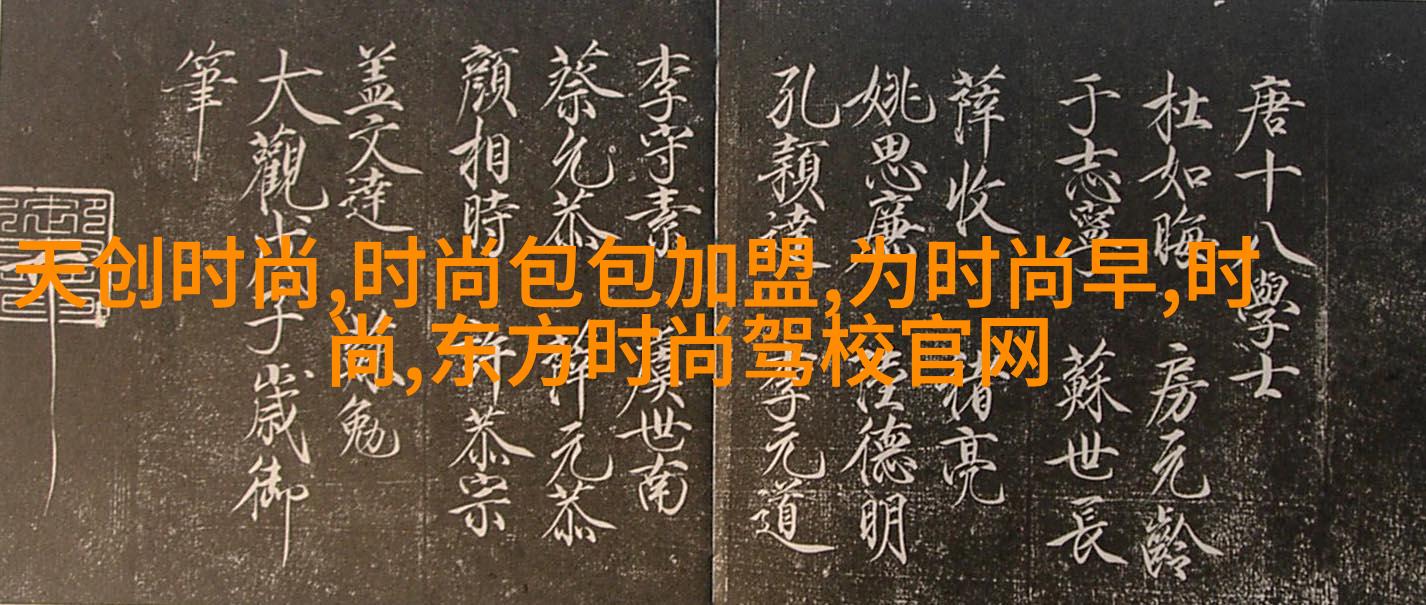 天创时尚,时尚包包加盟,为时尚早,时
尚,东方时尚驾校官网
唐十八學士
杜如晦 房元齡
于志寧 蘇世長
薛收 褚亮
姚思廉 陸德明
孔穎達 李元道
李守素 虞世南
蔡允恭 元恭
顏相時 許恭宗
盖文達 勉
大觀戊子歲御
筆